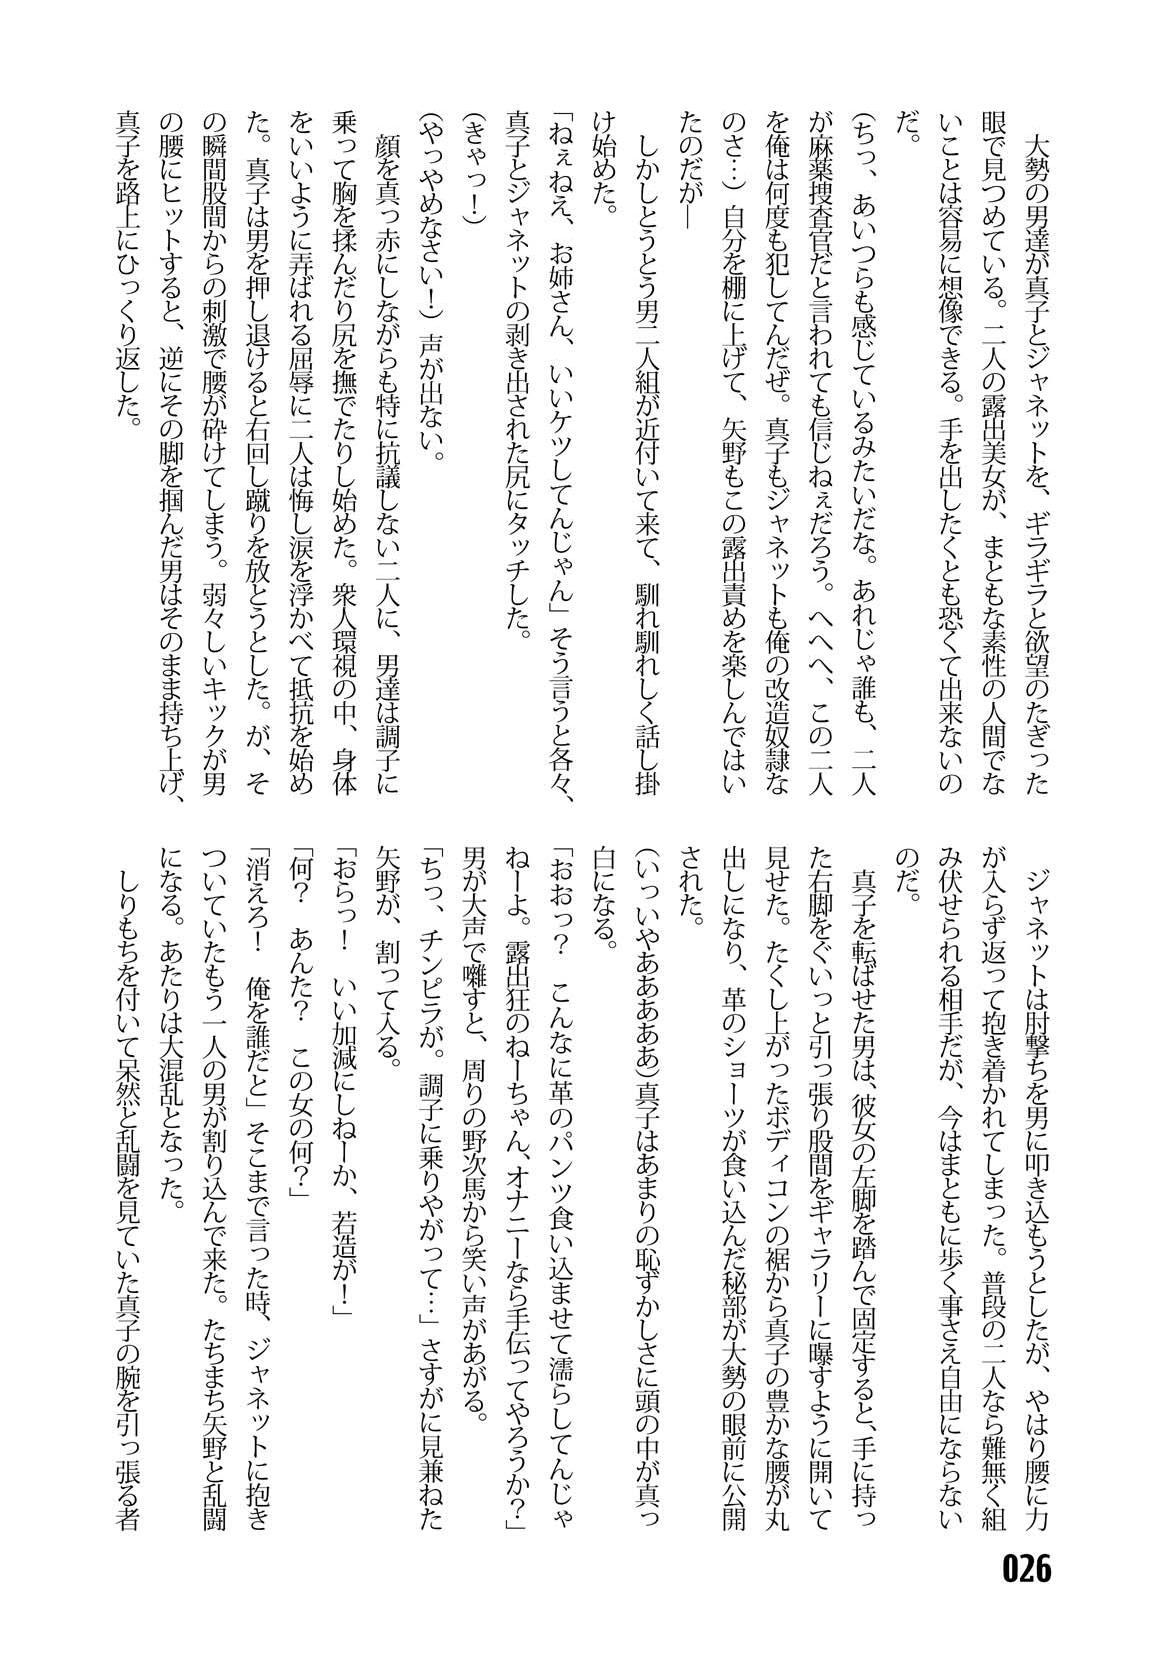 大勢の男達が真子とジャネットを、ギラギラと欲望のたぎった
眼で見つめている。二人の露出美女が、まともな素性の人間でな
いことは容易に想像できる。手を出したくとも恐くて出来ないの
だ。
（ちっ、あいつらも感じているみたいだな。あれじゃ誰も、二人
が麻薬捜査官だと言われても信じねぇだろう。へへへ、この二人
を俺は何度も犯してんだぜ。真子もジャネットも俺の改造奴隷な
のさ…）自分を棚に上げて、矢野もこの露出責めを楽しんではい
たのだが―
　しかしとうとう男二人組が近付いて来て、馴れ馴れしく話し掛
け始めた。
「ねぇねえ、お姉さん、いいケツしてんじゃん」そう言うと各々、
真子とジャネットの剥き出された尻にタッチした。
（きゃっ！）
（やっやめなさい！）声が出ない。
　顔を真っ赤にしながらも特に抗議しない二人に、男達は調子に
乗って胸を揉んだり尻を撫でたりし始めた。衆人環視の中、身体
をいいように弄ばれる屈辱に二人は悔し涙を浮かべて抵抗を始め
た。真子は男を押し退けると右回し蹴りを放とうとした。が、そ
の瞬間股間からの刺激で腰が砕けてしまう。弱々しいキックが男
の腰にヒットすると、逆にその脚を掴んだ男はそのまま持ち上げ、
真子を路上にひっくり返した。
　ジャネットは肘撃ちを男に叩き込もうとしたが、やはり腰に力
が入らず返って抱き着かれてしまった。普段の二人なら難無く組
み伏せられる相手だが、今はまともに歩く事さえ自由にならない
のだ。
　真子を転ばせた男は、彼女の左脚を踏んで固定すると、手に持っ
た右脚をぐいっと引っ張り股間をギャラリーに曝すように開いて
見せた。たくし上がったボディコンの裾から真子の豊かな腰が丸
出しになり、革のショーツが食い込んだ秘部が大勢の眼前に公開
された。
（いっいやああああぁ）真子はあまりの恥ずかしさに頭の中が真っ
白になる。
「おおっ？　こんなに革のパンツ食い込ませて濡らしてんじゃ
ねーよ。露出狂のねーちゃん、オナニーなら手伝ってやろうか？」
男が大声で囃すと、周りの野次馬から笑い声があがる。
「ちっ、チンピラが。調子に乗りやがって…」さすがに見兼ねた
矢野が、割って入る。
「おらっ！　いい加減にしねーか、若造が！」
「何？　あんた？　この女の何？」
「消えろ！　俺を誰だと」そこまで言った時、ジャネットに抱き
ついていたもう一人の男が割り込んで来た。たちまち矢野と乱闘
になる。あたりは大混乱となった。
　しりもちを付いて呆然と乱闘を見ていた真子の腕を引っ張る者
026